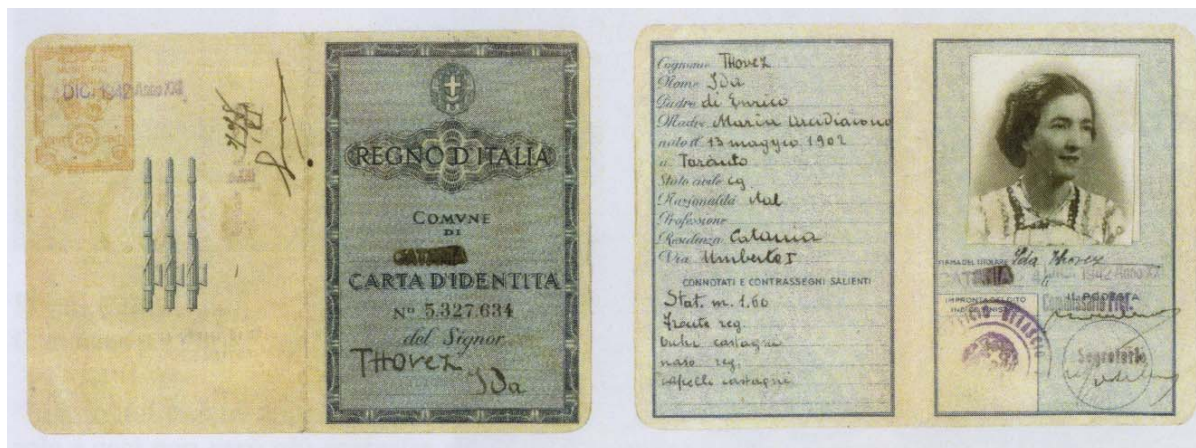 DIC. 1942 Anno XXI
REGNO D'ITALIA
COMVNE
DI
CATANIA
CARTA D'IDENTITA
Nº 5.327.634
del Signor
THovez
Ida
Cognome THovez
Nome Ida
Padre di Enrico
Madre Maria Arcidiacono
nato il 13 maggio 1902
a Taranto
Stato civile cg
Nazionalità ital
Professione
Residenza Catania
Via Umberto I
CONNOTATI E CONTRASSEGNI SALIENTI
Stat. m. 1.60
Fronte reg.
castagni
naso reg.
capelli castagni
FIRMA DEL TITOLARE Ida Thovez
CATANIA
DIC. 1942 Anno XXI
IMPRONTA DEL DITO
INDICE SINISTRO
IL PODESTA
Segretario